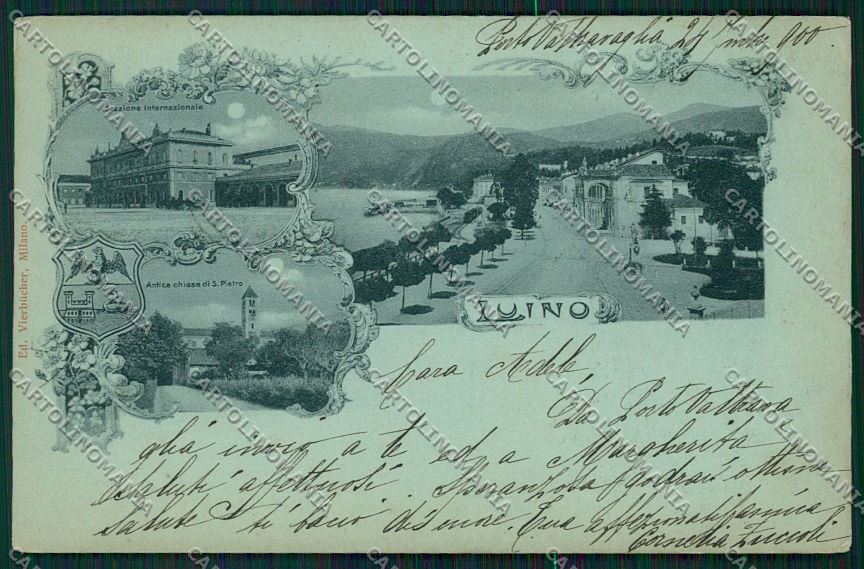 Porto Valtravaglia 900
Stazione Internazionale
Antica chiesa di S. Pietro
LUINO
Ed. Vierbücher, Milano.
Cara Adele,
Da Porto Valtrava
glia invio a te ed a Margherita
saluti affettuosi. Speranzosa godrai ottima
salute ti bacio di cuore. Tua affezionatissima
Cornelia
CARTOLINOMANIA